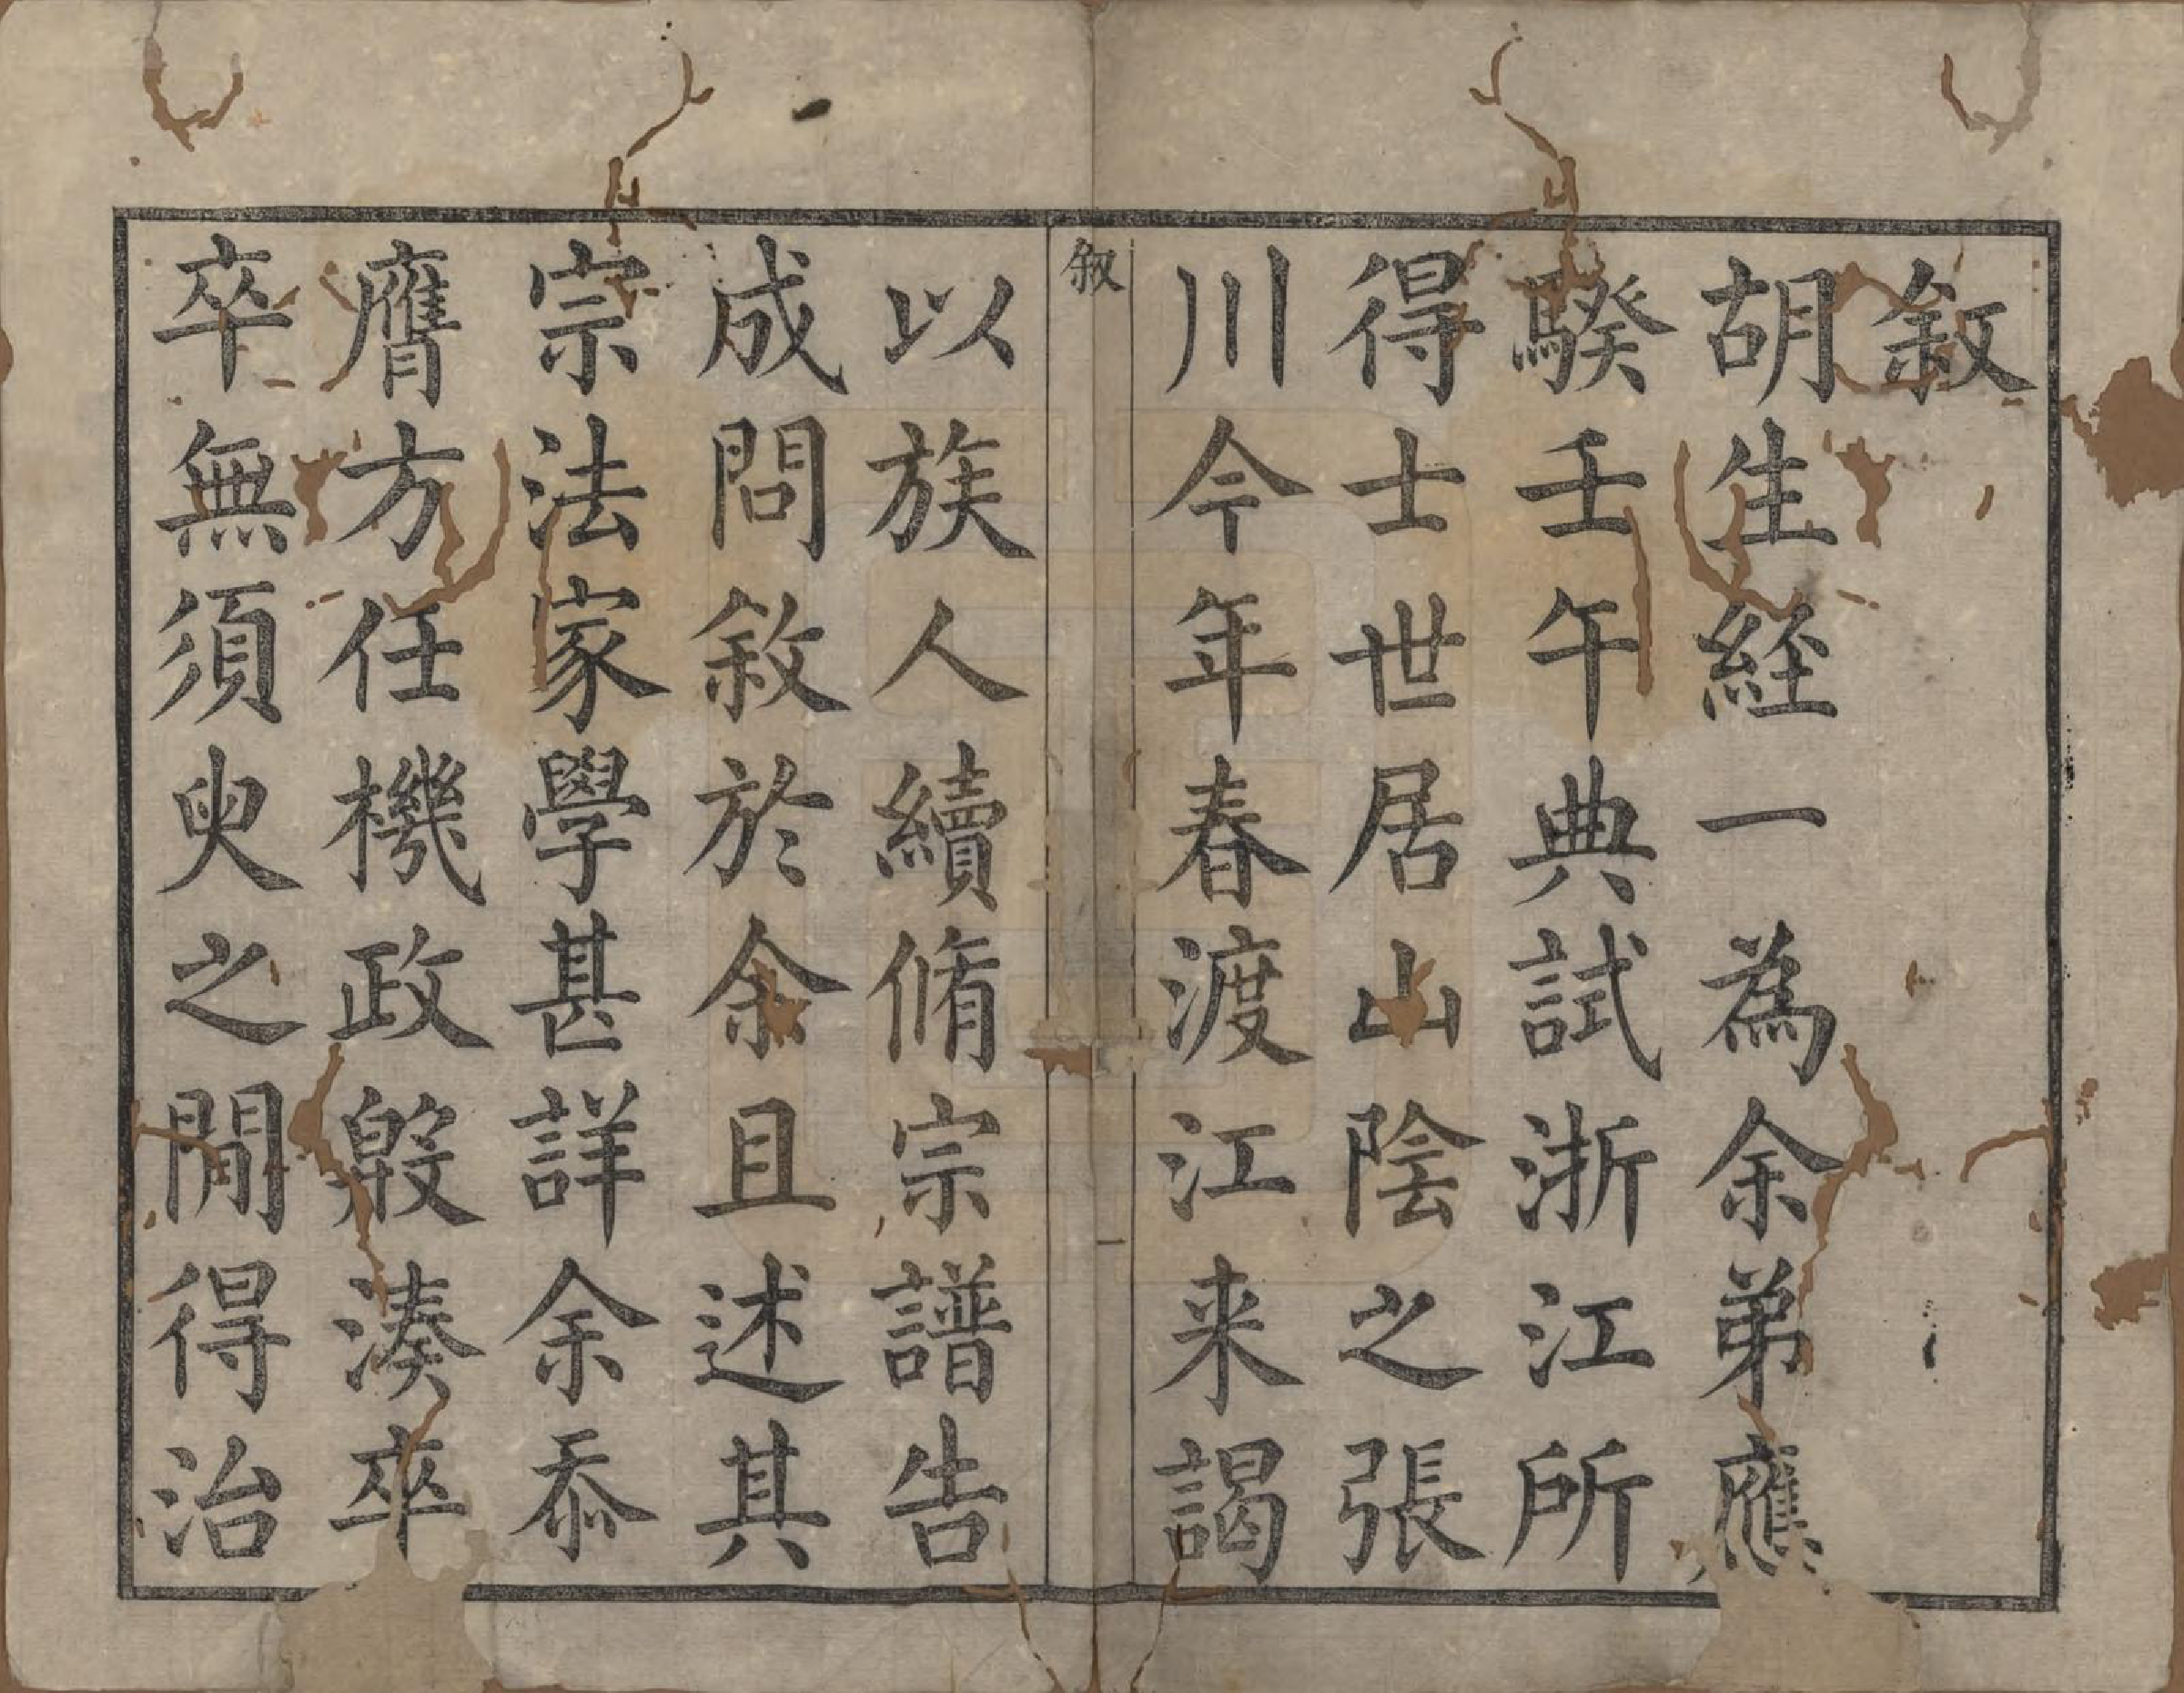 敘
胡生経一為余弟應
騤壬午典試浙江所
得士世居山陰之張
川今年春渡江来謁
敘
一
以族人續脩宗譜告
成問敘於余且述其
宗法家學甚詳余忝
膺方任機政殷湊卒
卒無須臾之閒得治